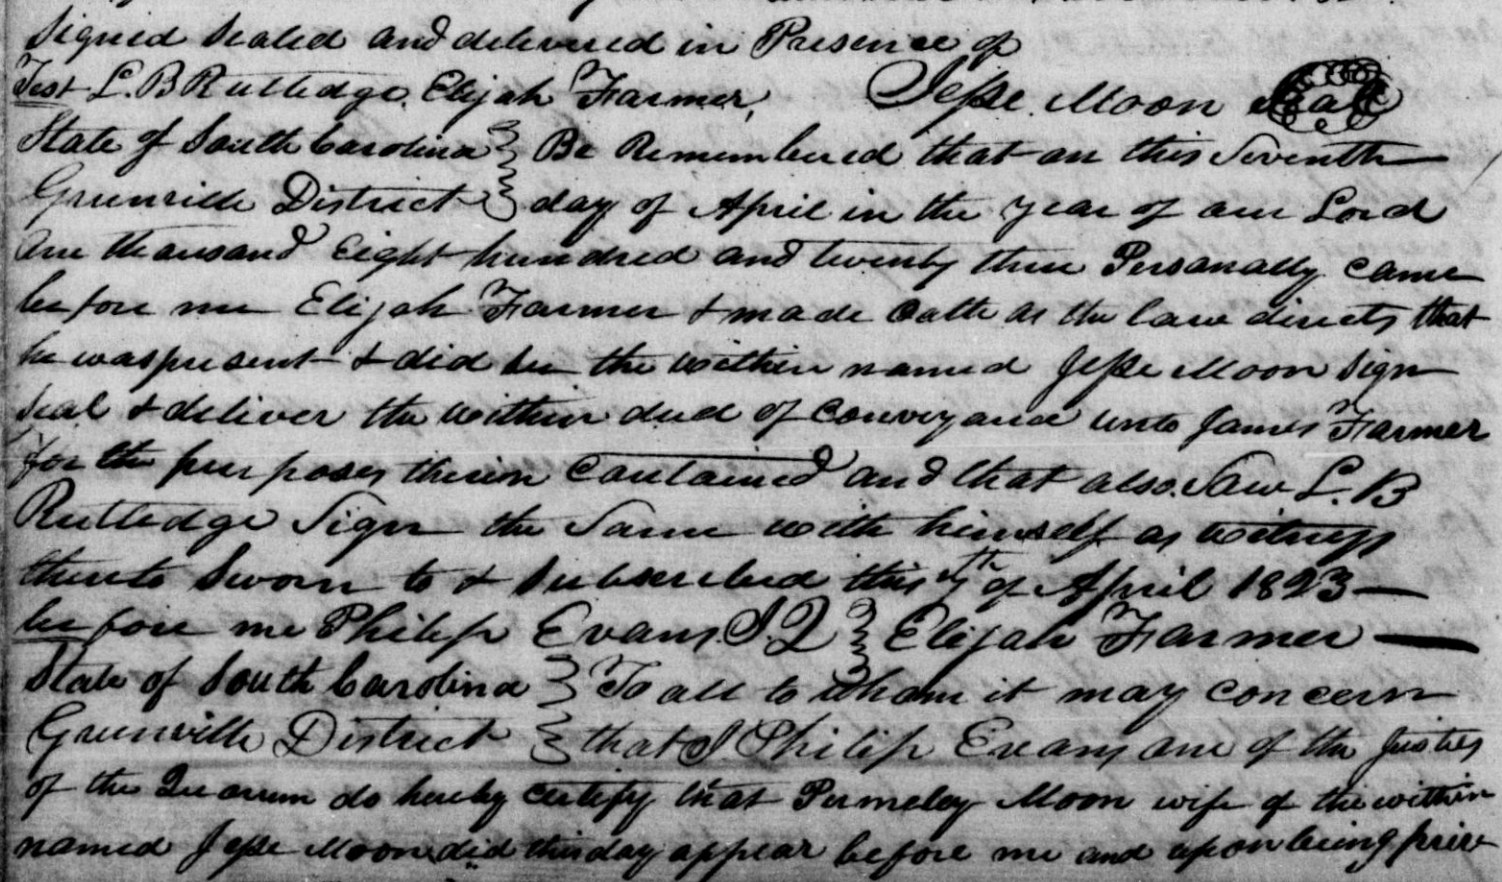 Signed Sealed and delivered in Presence of
Test L. B Rutledge. Elijah Farmer, Jesse Moon Seal
State of South Carolina } Be Remembered that on this Seventh
Greenville District } day of April in the year of our Lord
one thousand Eight hundred and twenty three Personally came
before me Elijah Farmer & made oath as the law directs that
he was present & did see the within named Jesse Moon Sign
Seal & deliver the within deed of conveyance unto James Farmer
for the purposes therein contained and that also Saw L. B
Rutledge Sign the Same with himself as witness
thereto Sworn to & Subscribed this 7th of April 1823 —
before me Philip Evans J. Q } Elijah Farmer —
State of South Carolina } To all to whom it may concern
Greenville District } that I Philip Evans one of the Justies
of the Quorum do hereby certify that Permeley Moon wife of the within
named Jesse Moon did this day appear before me and upon being priv